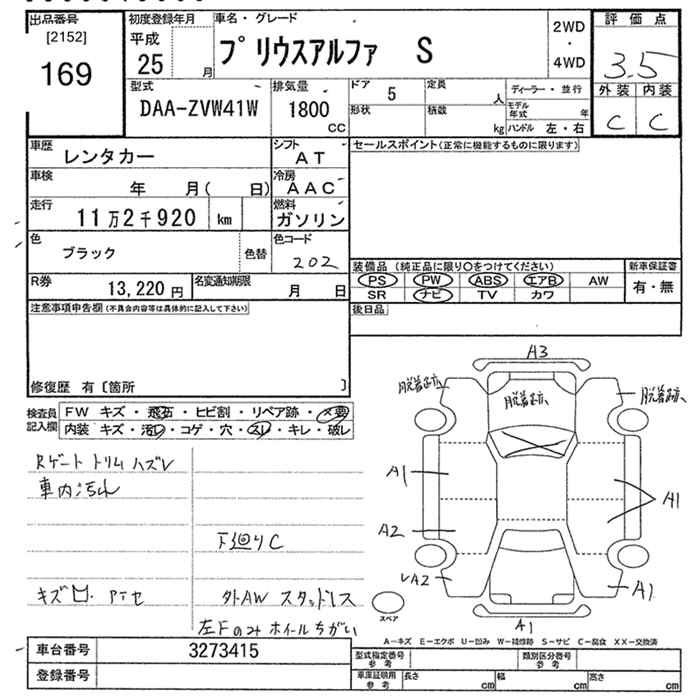 出品番号
[2152]
169
初度登録年月
平成
25
月
車名・グレード
プリウスアルファ S
2WD
・
4WD
評価点
3.5
外装 内装
C C
型式
DAA-ZVW41W
排気量
1800
CC
ドア
5
定員
人
形状
積数
kg
ディーラー・並行
モデル年式
年
ハンドル 左・右
車歴
レンタカー
シフト
AT
セールスポイント(正常に機能するものに限ります)
車検
年 月( 日)
冷房
AAC
走行
11万2千920 km
燃料
ガソリン
色
ブラック
色替
色コード
202
装備品 (純正品に限り○をつけてください)
新車保証書
PS PW ABS エアB AW
有・無
SR ナビ TV カワ
R券
13,220円
名変通知期限
月 日
後日品
注意事項申告欄(不具合内容等は具体的に記入して下さい)
修復歴 有 [箇所 ]
検査員
記入欄
FW キズ・飛石・ヒビ割・リペア跡・×要
内装 キズ・汚レ・コゲ・穴・スレ・キレ・破レ
Rゲートトリムハズレ
車内汚れ
下廻りC
キズ凹・
外AW スタッドレス
左Fのみホイールちがい
A3
脱着跡
脱着跡
脱着跡
A1
A1
A2
A2
A1
A1
スペア
A-キズ E-エクボ U-凹み W-補修跡 S-サビ C-腐食 XX-交換済
車台番号
3273415
登録番号
型式指定番号
参考
類別区分番号
参考
車庫証明用
参考
長さ
cm
幅
cm
高さ
cm